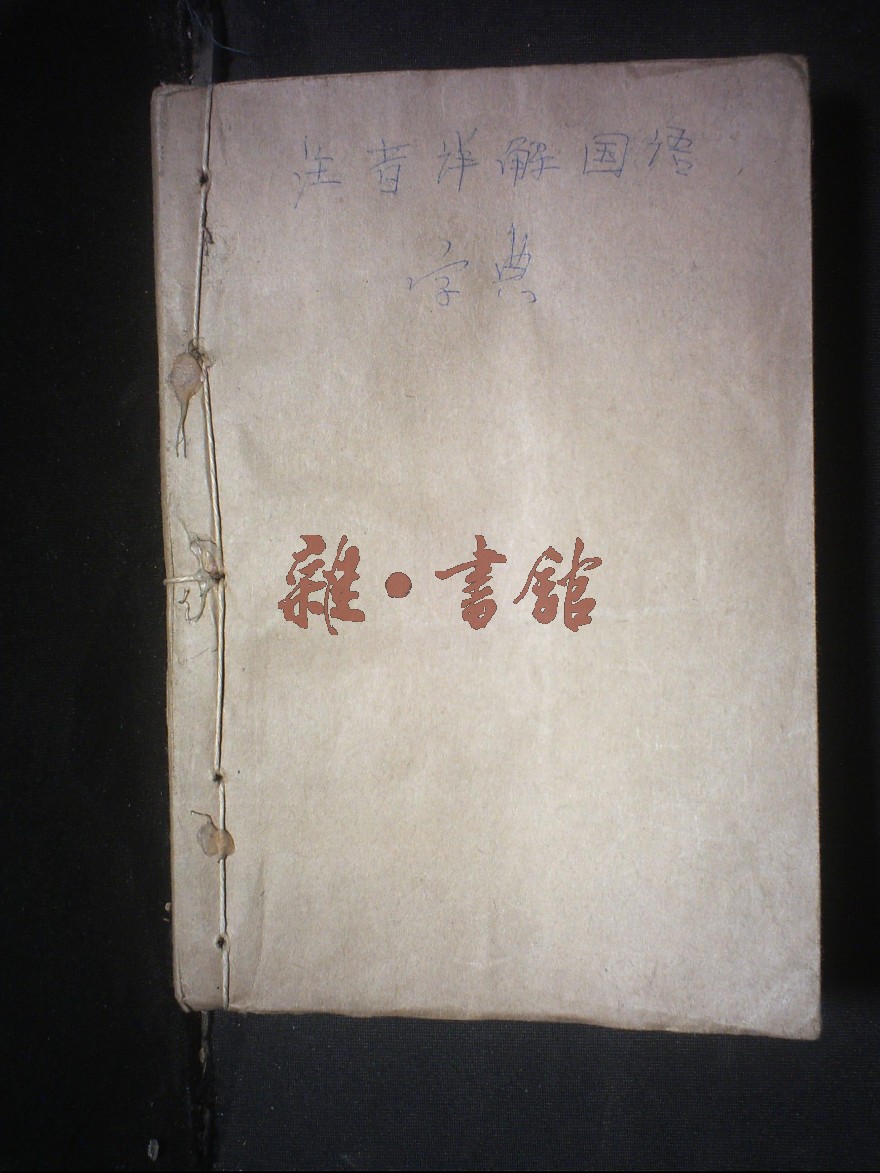 注音详解国语
字典
雜·書館